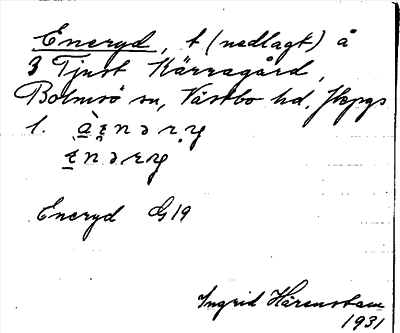 Eneryd, t (nedlagt) å
3 Tjust Kärragård,
Bolmsö sn, Västbo hd, Jkpgs
l.
Eneryd G19
Ingrid Härenstam
1931